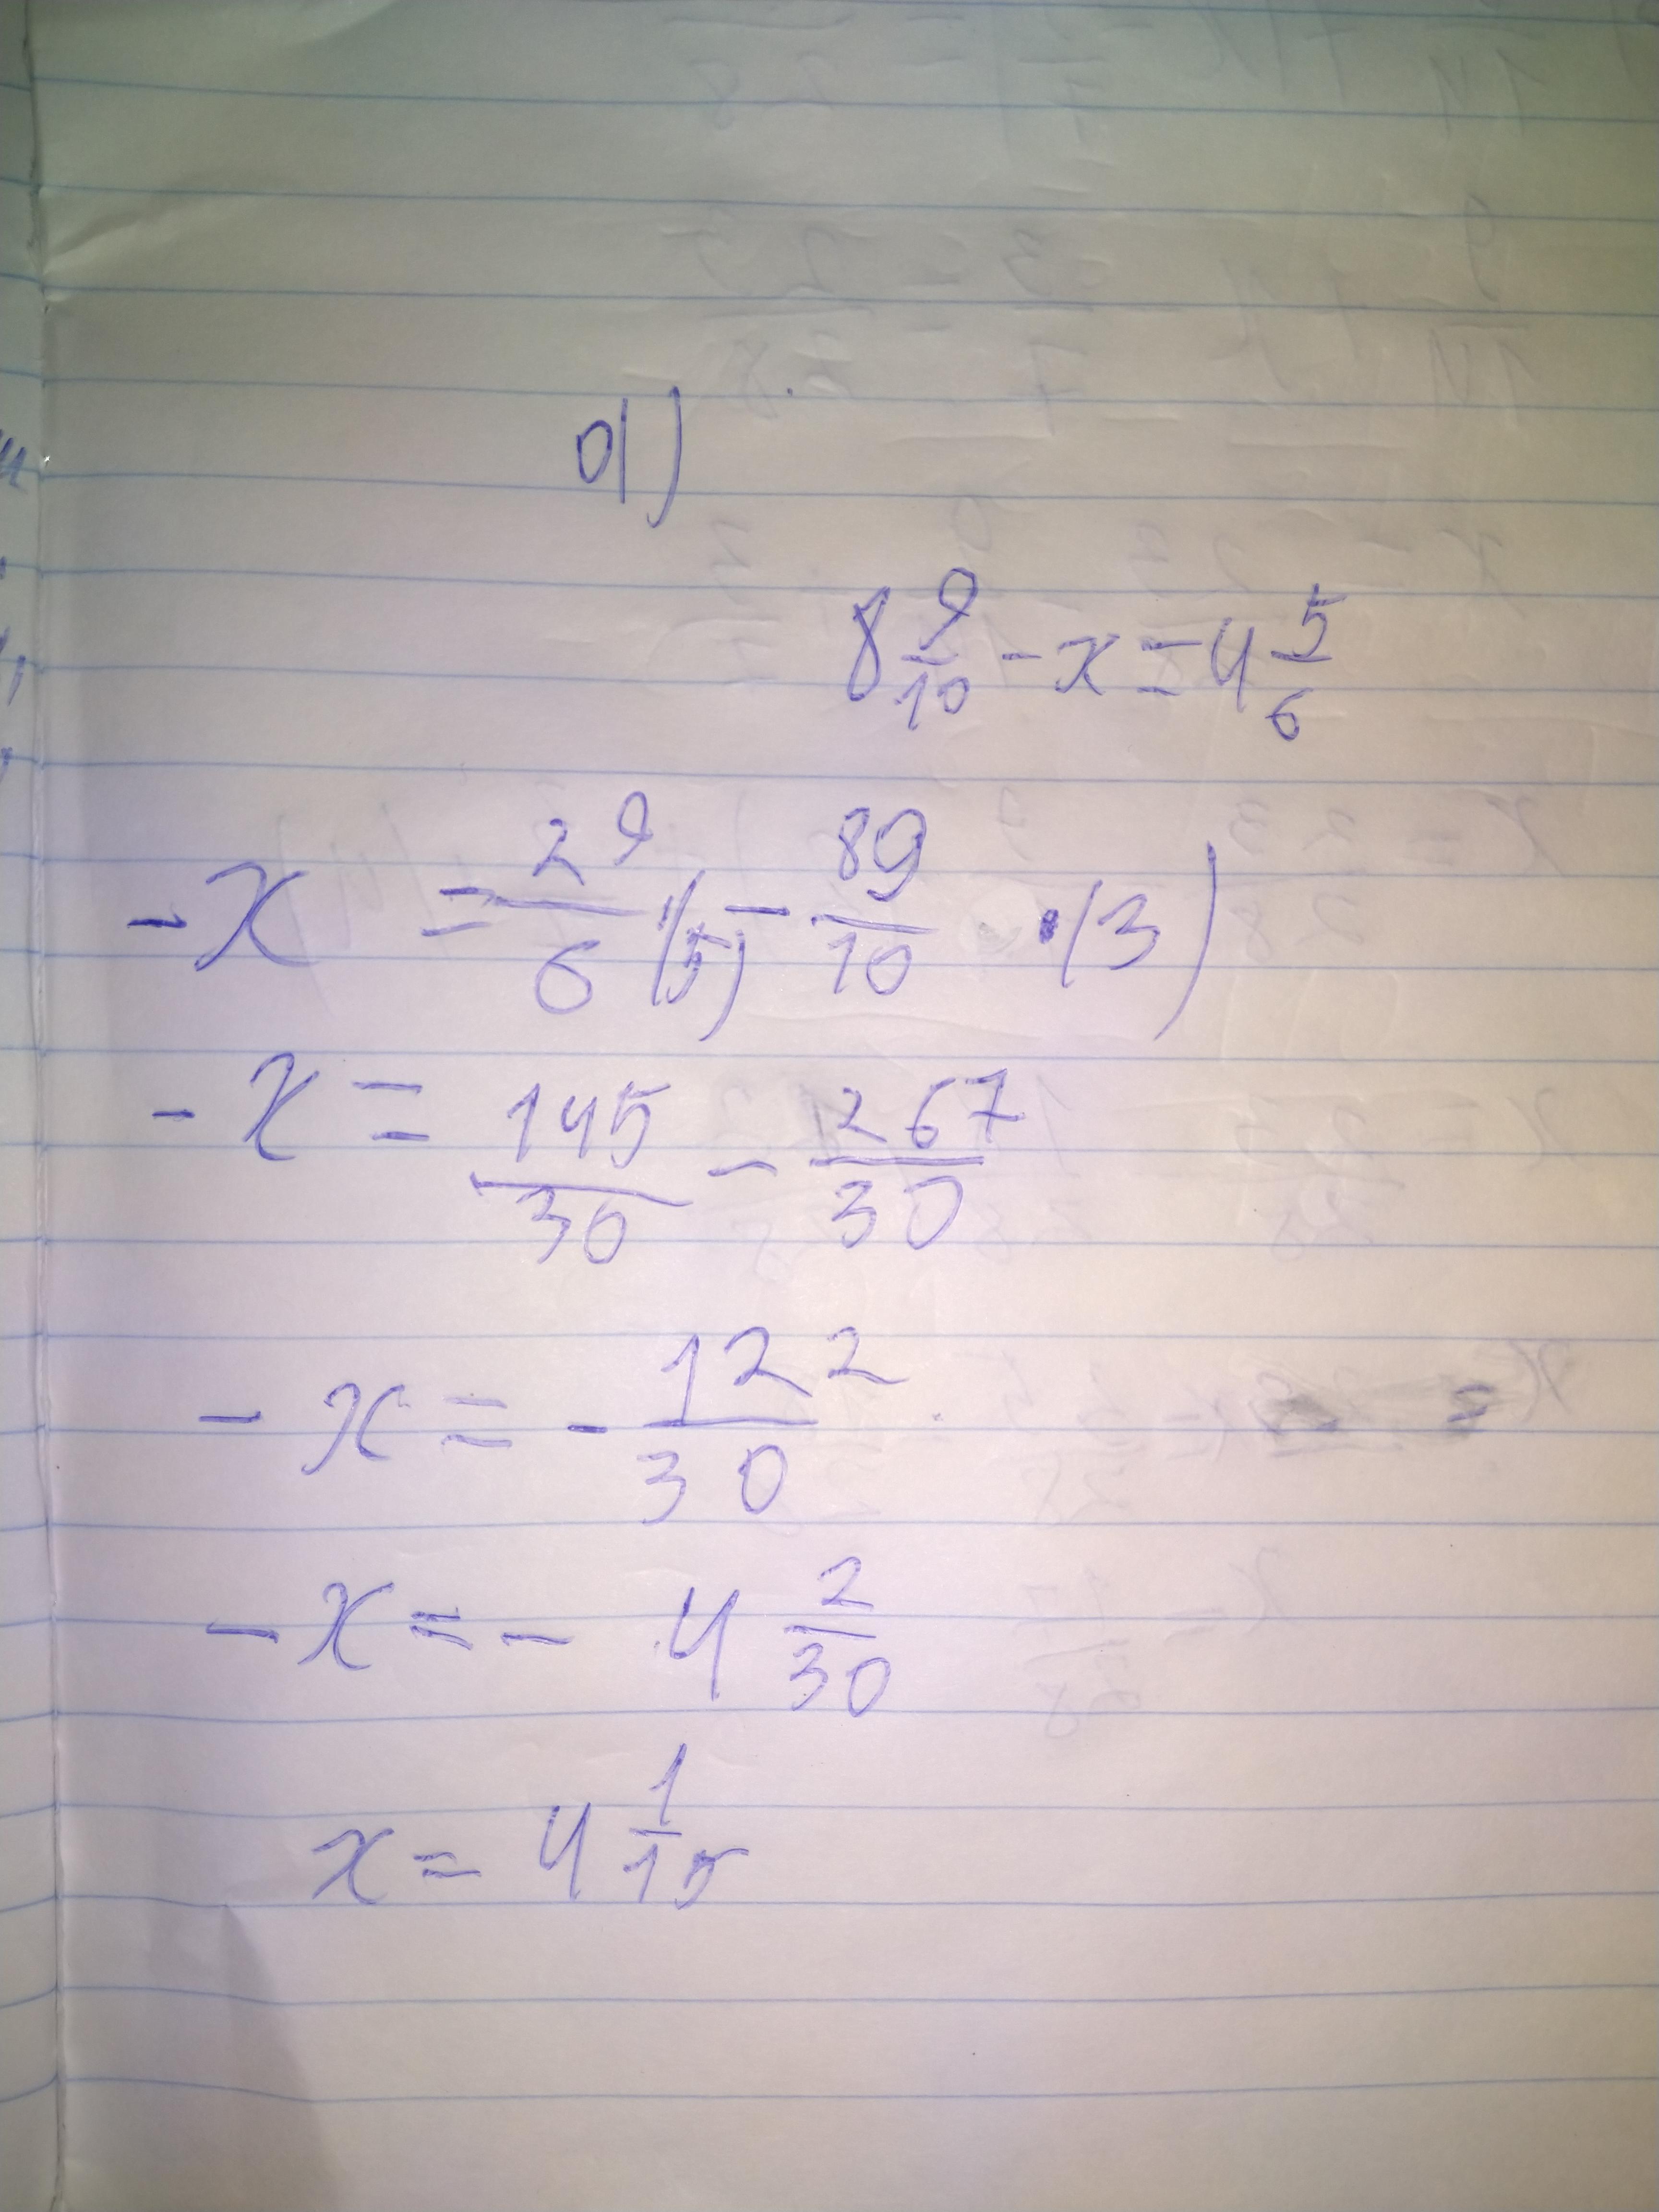 a)
8 9/10 - x = 4 5/6
-x = 29/6 (5) - 89/10 · (3)
-x = 145/30 - 267/30
-x = - 122/30
-x = - 4 2/30
x = 4 1/15